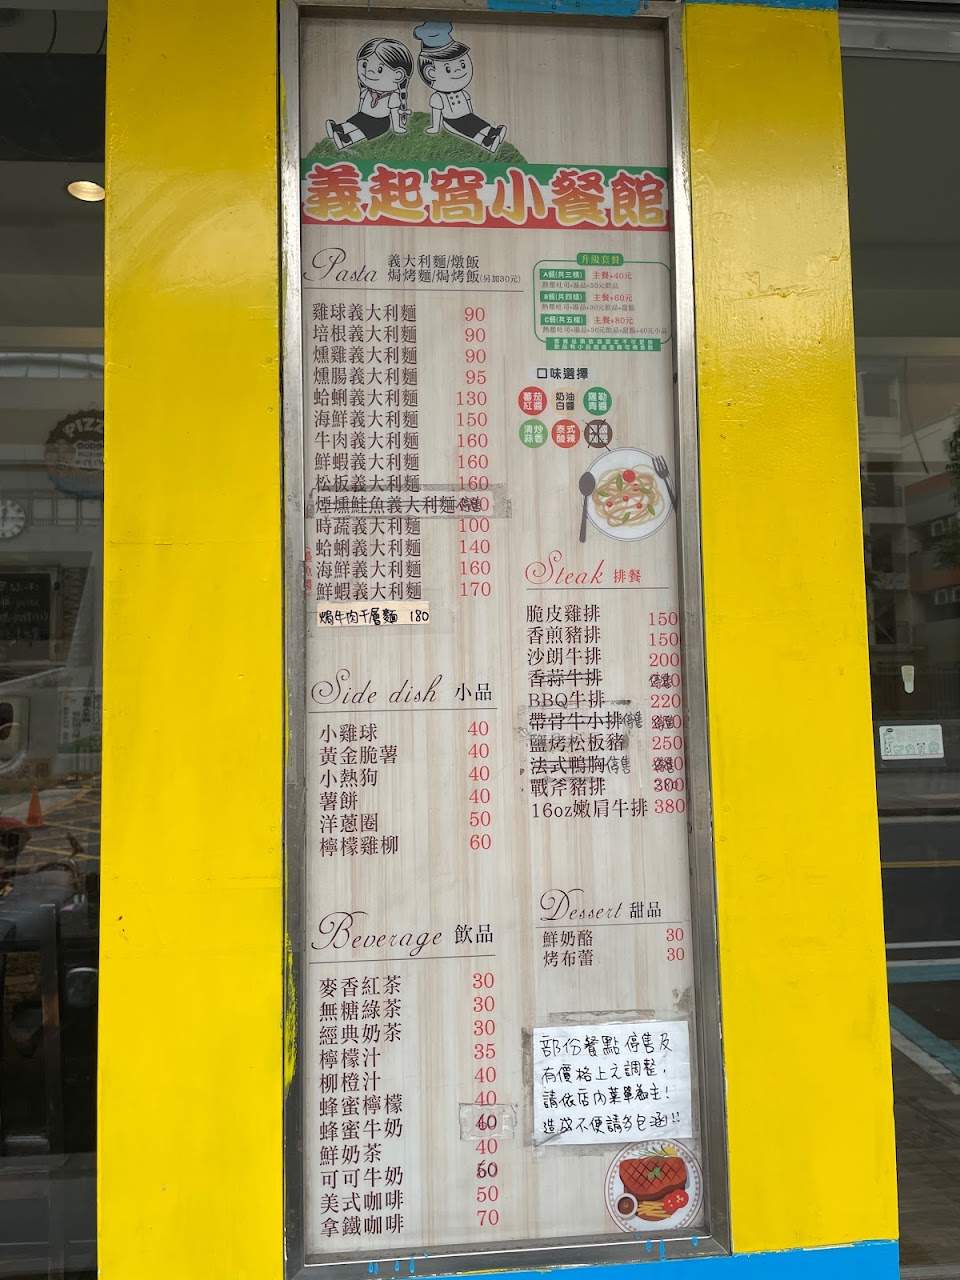 義起窩小餐館
Pasta 義大利麵/燉飯
焗烤麵/焗烤飯(另加30元)
雞球義大利麵 90
培根義大利麵 90
燻雞義大利麵 90
燻腸義大利麵 95
蛤蜊義大利麵 130
海鮮義大利麵 150
牛肉義大利麵 160
鮮蝦義大利麵 160
松板義大利麵 160
煙燻鮭魚義大利麵 停售
時蔬義大利麵 100
蛤蜊義大利麵 140
海鮮義大利麵 160
鮮蝦義大利麵 170
焗牛肉千層麵 180
升級套餐
A餐(共三樣) 主餐+40元
熱壓吐司+湯品+30元飲品
B餐(共四樣) 主餐+60元
熱壓吐司+湯品+30元飲品+甜點
C餐(共五樣) 主餐+80元
熱壓吐司+湯品+30元飲品+甜點+40元小品
口味選擇
蕃茄紅醬 奶油白醬 羅勒青醬
清炒蒜香 泰式酸辣
Steak 排餐
脆皮雞排 150
香煎豬排 150
沙朗牛排 200
香蒜牛排 停售
BBQ牛排 220
帶骨牛小排 停售 停售
鹽烤松板豬 250
法式鴨胸 停售 停售
戰斧豬排 300
16oz嫩肩牛排 380
Side dish 小品
小雞球 40
黃金脆薯 40
小熱狗 40
薯餅 40
洋蔥圈 50
檸檬雞柳 60
Dessert 甜品
鮮奶酪 30
烤布蕾 30
Beverage 飲品
麥香紅茶 30
無糖綠茶 30
經典奶茶 30
檸檬汁 35
柳橙汁 40
蜂蜜檸檬 40
蜂蜜牛奶 40
鮮奶茶 40
可可牛奶 50
美式咖啡 50
拿鐵咖啡 70
部份餐點停售及
有價格上之調整,
請依店內菜單為主!
造成不便請多包涵!!
PIZZ